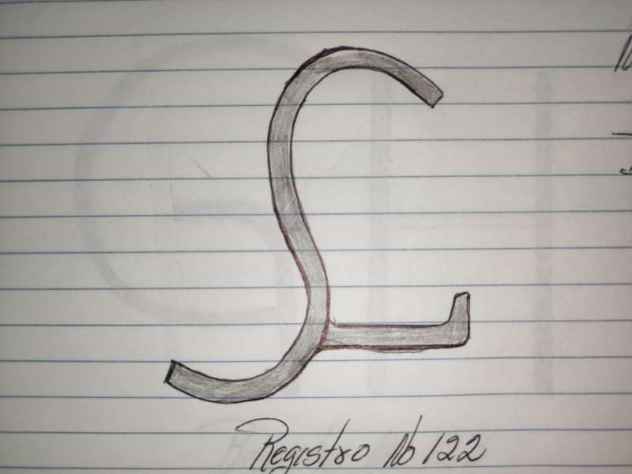 Registro No 122